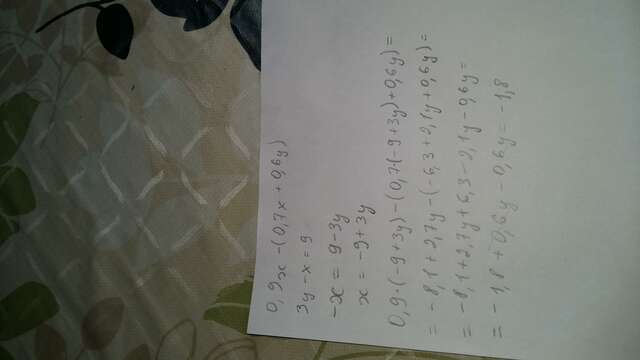 0,9x-(0,7x+0,6y)
3y-x=9
-x=9-3y
x=-9+3y
0,9·(-9+3y)-(0,7·(-9+3y)+0,6y)=
=-8,1+2,7y-(-6,3+2,1y+0,6y)=
=-8,1+2,7y+6,3-2,1y-0,6y=
=-1,8+0,6y-0,6y=-1,8